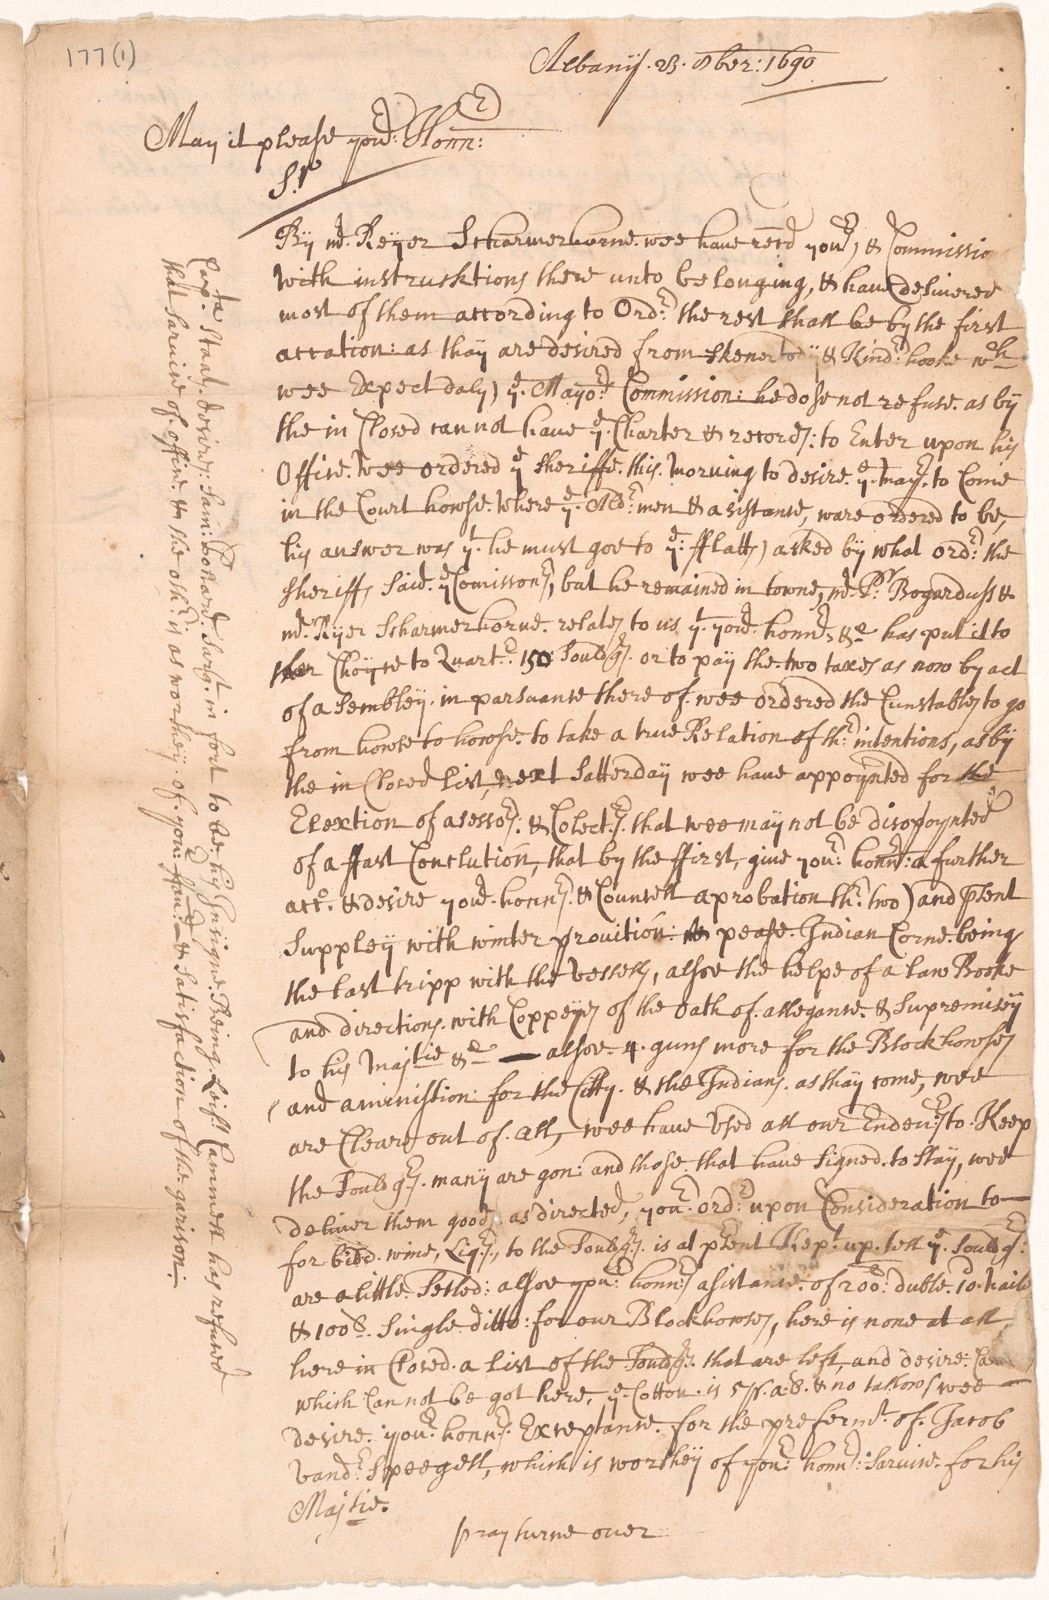 177(1)
Albanij. 23. 8ber: 1690
May it please your. Honnr:
Sr
By mr. Reyer Scharmerhorne. wee have recd your, & Commissio
with instrucktions there unto belonging, & have delivered
most of them according to Ordr. the rest shall be by the first
accation: as thay are desired from Skenectody & Kindr: hooke wch
wee Expect daly) ye. Mayor Commission: he dose not refuse. as by
the in Closed cannot have ye. Charter & records: to Enter upon his
Office. wee ordered ye sheriffe. this. morning to desire. ye. mayr. to Come
in the Court howse. where ye. Aldr: men & asistance, ware ordered to be,
his answer was yt. he must goe to ye: fflatts) asked by what ordr: the
sheriffs said. ye Comissonr, but he remained in towne, mr. Pr Bogarduss &
mr. Ryer Scharmerhorne. relates to us yt. your. honnr, &c has put it to
ther Choyce to Quartr. 150 Souldgrs. or to pay the two taxes as now by act
of asembley. in parsuance there of. wee ordered the Cunstables to go
from howse to howse. to take a true Relation of thr. intentions, as by
the in Closed list, next Satterday wee have appoynted for the
Elextion of asessors: & Colectrs. that wee may not be disopoynted
of a ffast Conclution, that by the ffirst, give your: honnr: a further
acco. & desire your. honnrs. & Councell aprobation thr: two) and psent
Suppley with winter provition: pease. Indian Corne. being
the last tripp with the vessells, alsoe the helpe of a law Booke
and directions. with Coppeys of the oath of. allegance. & Supremisey
to his Majtie &c — alsoe. 4. guns more for the Blockhowses
and aminission: for the Citty. & the Indians. as thay come, wee
are Cleare out of. all, wee have Used all our Endevrs to. Keep
the Souldgrs. many are gon: and those. that have signed. to stay, wee
deliver them goods as directed, your: ordr: upon Consideration to —
for wine, Liqrs, to the Souldgrs. is at psent Kept. up. tell ye. Souldgrs:
are a little. Setled: alsoe your: honnrs asistance. of 200: duble. 10d. Naile
& 100 8. Single ditto: for our Blockhowses, here is none at all,
here in Closed. a list of the Souldgrs. that are left, and desire:
which Can not be got here, ye. Cotton. is 5/s. a. & no tallow wee —
desire. your: honnrs. Exceptance. for the prefermt. of. Jacob
Vandr: Speegell, which is worthey of your: honnrs: Sarvice. for his
Majtie.
pray turne over
Capta. Staats. desires: Sam: Sargt. in fort to be. his Ensigne. Being. Leist. Cammell has refused
that Sarvice of. office. & the othr: is as worthey. of. your: & Satisfaction of the. garison.